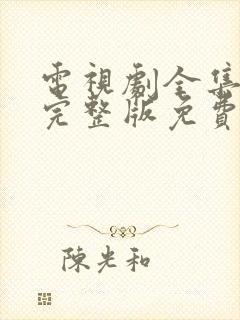 電視劇全集
完整版免費
陳光和